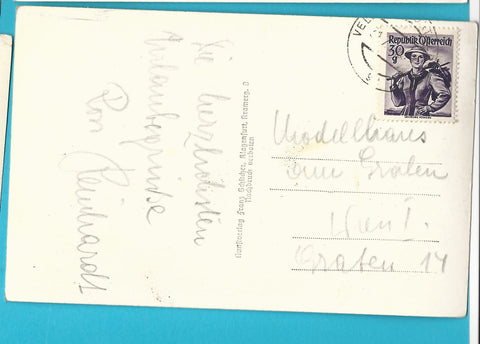 Die herzlichsten
Urlaubsgrüsse
Von Reinhardt
Kunstverlag Franz Schilcher, Klagenfurt,
Nachdruck verboten
VEL
Republik Österreich
30
g
Modellhaus
am Graben
Wien I.
Graben 14